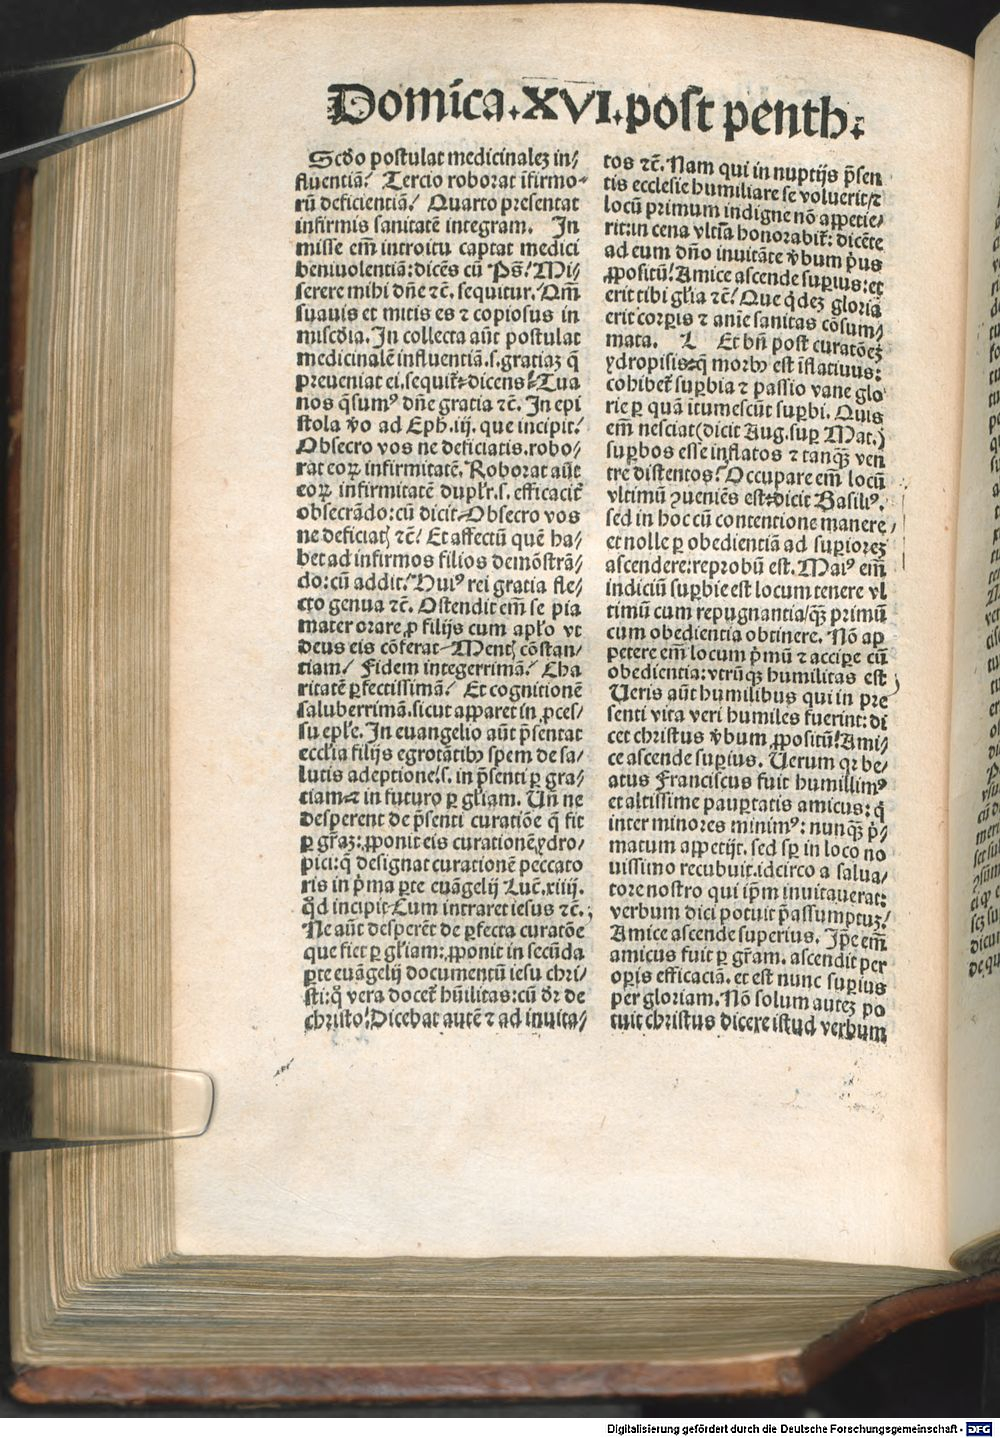 Domīca.XVI.post penth.
Scďo postulat medicinalez in/
fluentiā/ Tercio roborat īfirmo-
rū deficientiā/ Quarto presentat
infirmis sanitatē integram. In
misse em̄ introitu captat medici
beniuolentiā: dicēs cū Ps̄/ Mi/
serere mihi dn̄e ⁊c̄. sequitur. Qm̄
suauis et mitis es ⁊ copiosus in
mis̄cdia. In collecta aūt postulat
medicinalē influentiā.s.gratiaꝫ q̄
preueniat ei. sequit᷑ dicens/ Tua
nos q̄sumꝰ dn̄e gratia ⁊c̄. In epi
stola v̊o ad Eph. iij. que incipit/
Obsecro vos ne deficiatis. robo/
rat eoꝝ infirmitatē. Roborat aūt
eoꝝ infirmitatē dupl'r.s. efficacit᷑
obsecrādo: cū dicit Obsecro vos
ne deficiat{ ⁊c̄/ Et affectū quē ha/
bet ad infirmos filios demōstrā/
do: cū addit/ Huiꝰ rei gratia fle/
cto genua ⁊c̄. Ostendit em̄ se pia
mater orare ꝓ filijs cum ap̄lo vt
deus eis cōferat Ment{ cōstan/
tiam/ Fidem integerrimā/ Cha
ritatē ꝑfectissimā/ Et cognitionē
saluberrimā. sicut apparet in ꝓces/
su epl'e. In euangelio aūt p̄sentat
eccl'ia filijs egrotātibꝰ spem de sa/
lutis adeptione/s. in p̄senti ꝑ gra/
tiam ⁊ in futuro ꝑ gl'iam. Un̄ ne
desperent de p̄senti curatiōe q̄ fit
ꝑ gr̄aꝫ: ꝓponit eis curationē ydro/
pici: q̄ designat curationē peccato
ris in p̄ma ꝑte euāgelij Luc̄. xiiij.
qd̄ incipit Cum intraret iesus ⁊c̄.
Ne aūt desperēt de ꝑfecta curatōe
que fiet ꝑ gl'iam: ꝓponit in secūda
ꝑte euāgelij documentū iesu chri/
sti: q̊ vera docet᷑ hūilitas: cū dr̄ de
christo/ Dicebat autē ⁊ ad inuita/
tos ⁊c̄. Nam qui in nuptijs p̄sen
tis ecclesie humiliare se voluerit/⁊
locū primum indigne nō appetie/
rit: in cena vltīa honorabit᷑: dicēte
ad eum dn̄o inuitāte v̊bum p̄us
ꝓpositū/ Amice ascende suꝑius: et
erit tibi gl'ia ⁊c̄/ Que q̇dez gloria
erit corꝑis ⁊ anīe sanitas cōsum/
mata. Et bn̄ post curatōeꝫ
ydropisis q̄ morbꝰ est īflatiuus:
cohibet᷑ suꝑbia ⁊ passio vane glo
rie ꝑ quā itumescūt suꝑbi. Quis
em̄ nesciat (dicit Aug. suꝑ Mat.)
suꝑbos esse inflatos ⁊ tanqꝫ̄ ven
tre distentos/ Occupare em̄ locū
vltimū ꝯueniēs est dicit Basiliꝰ.
sed in hoc cū contentione manere/
et nolle ꝑ obedientiā ad suꝑiorez
ascendere: reprobū est. Maiꝰ em̄
indiciū suꝑbie est locum tenere vl
timū cum repugnantia/qꝫ̄ primū
cum obedientia obtinere. Nō ap
petere em̄ locum p̄mū ⁊ acciꝑe cū
obedientia: vtrūqꝫ humilitas est
Ueris aūt humilibus qui in pre
senti vita veri humiles fuerint: di
cet christus v̊bum ꝓpositū/ Ami/
ce ascende suꝑius. Uerum qꝛ be/
atus Franciscus fuit humillimꝰ
et altissime pauꝑtatis amicus: q̇
inter minores minimꝰ: nunqꝫ̄ p̄/
matum appetijt. sed sꝑ in loco no
uissimo recubuit. idcirco a salua/
tore nostro qui ip̄m inuitauerat:
verbum dici potuit p̄assumptuꝫ/
Amice ascende superius. Ip̄e em̄
amicus fuit ꝑ gr̄am. ascendit per
oꝑis efficaciā. et est nunc suꝑius
per gloriam. Nō solum autez po
tuit christus dicere istud verbum
Digitalisierung gefördert durch die Deutsche Forschungsgemeinschaft - DFG